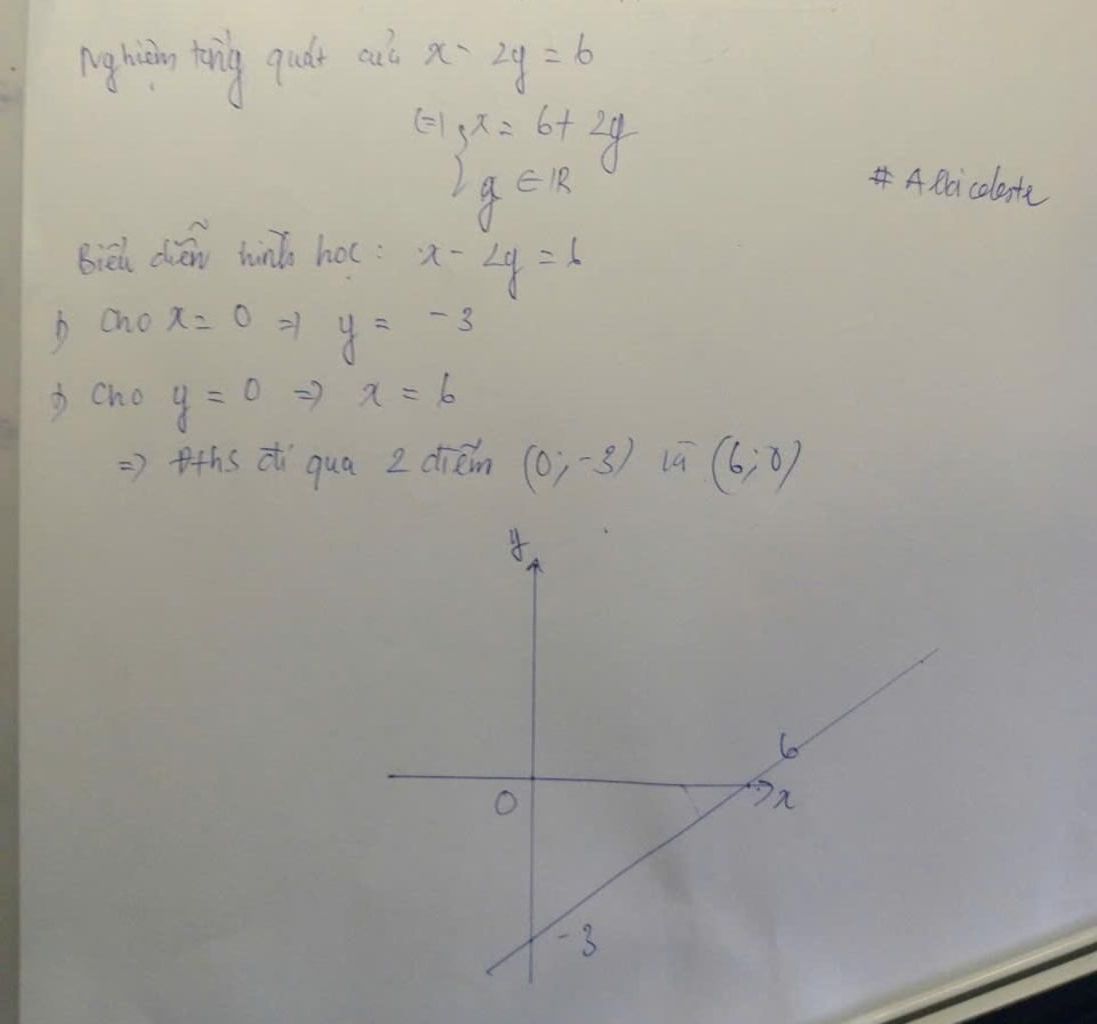 Nghiệm tổng quát của x - 2y = 6
(=) { x = 6 + 2y
{ y ∈ IR
# Albiceleste
Biểu diễn hình học: x - 2y = 6
+) Cho x = 0 => y = -3
+) Cho y = 0 => x = 6
=> Đths đi qua 2 điểm (0; -3) và (6; 0)
y
6
O
x
-3